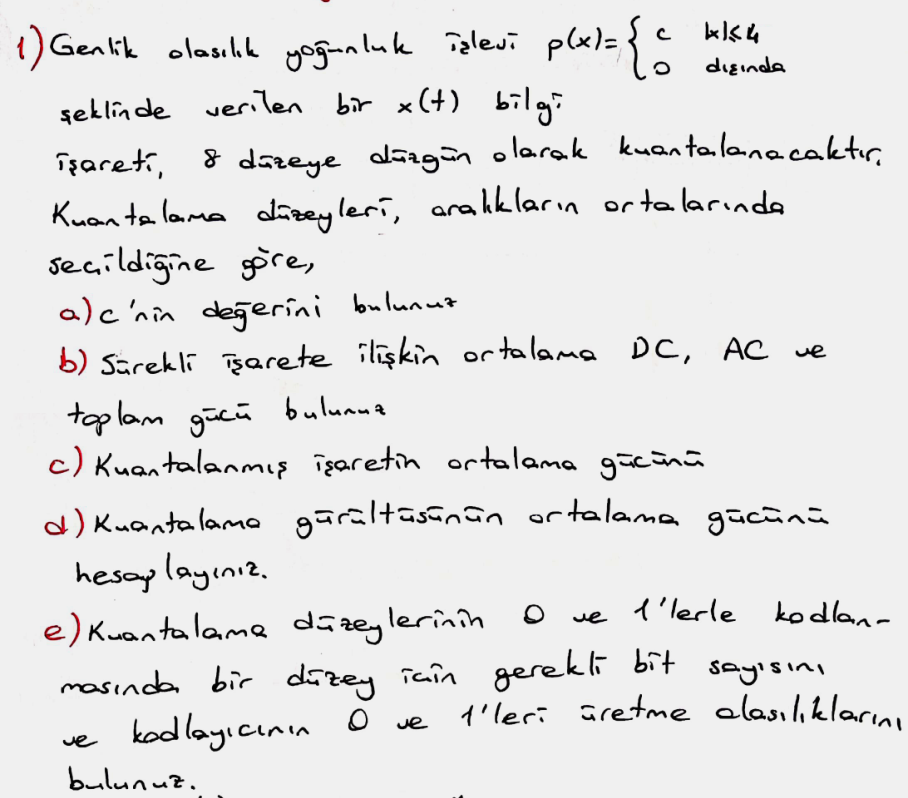 1) Genlik olasılık yoğunluk işlevi p(x)= { c |x|≤4
0 dışında
şeklinde verilen bir x(t) bilgi
işareti, 8 düzeye düzgün olarak kuantalanacaktır.
Kuantalama düzeyleri, aralıkların ortalarında
seçildiğine göre,
a) c'nin değerini bulunuz
b) Sürekli işarete ilişkin ortalama DC, AC ve
toplam gücü bulunuz
c) Kuantalanmış işaretin ortalama gücünü
d) Kuantalama gürültüsünün ortalama gücünü
hesaplayınız.
e) Kuantalama düzeylerinin 0 ve 1'lerle kodlan-
masında bir düzey için gerekli bit sayısını
ve kodlayıcının 0 ve 1'leri üretme olasılıklarını
bulunuz.